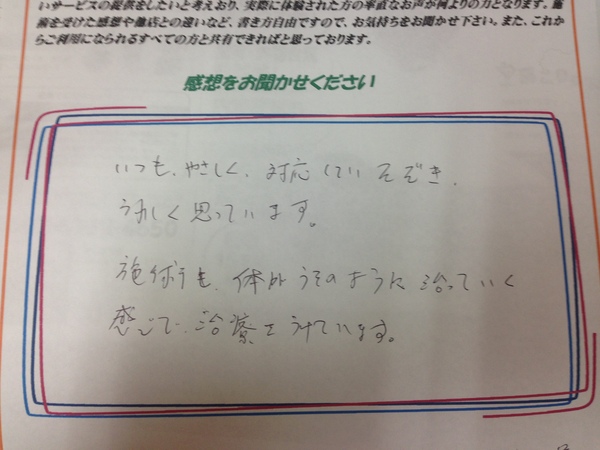 いサービスの提供をしたいと考えており、実際に体験された方の率直なお声が何よりの力となります。施
術を受けた感想や他店との違いなど、書き方自由ですので、お気持ちをお聞かせ下さい。また、これか
らご利用になられるすべての方と共有できればと思っております。
感想をお聞かせください
いつも、やさしく、対応していただき、
うれしく思っています。
施術も、体がうそのように治っていく
感じで、治療をうけています。